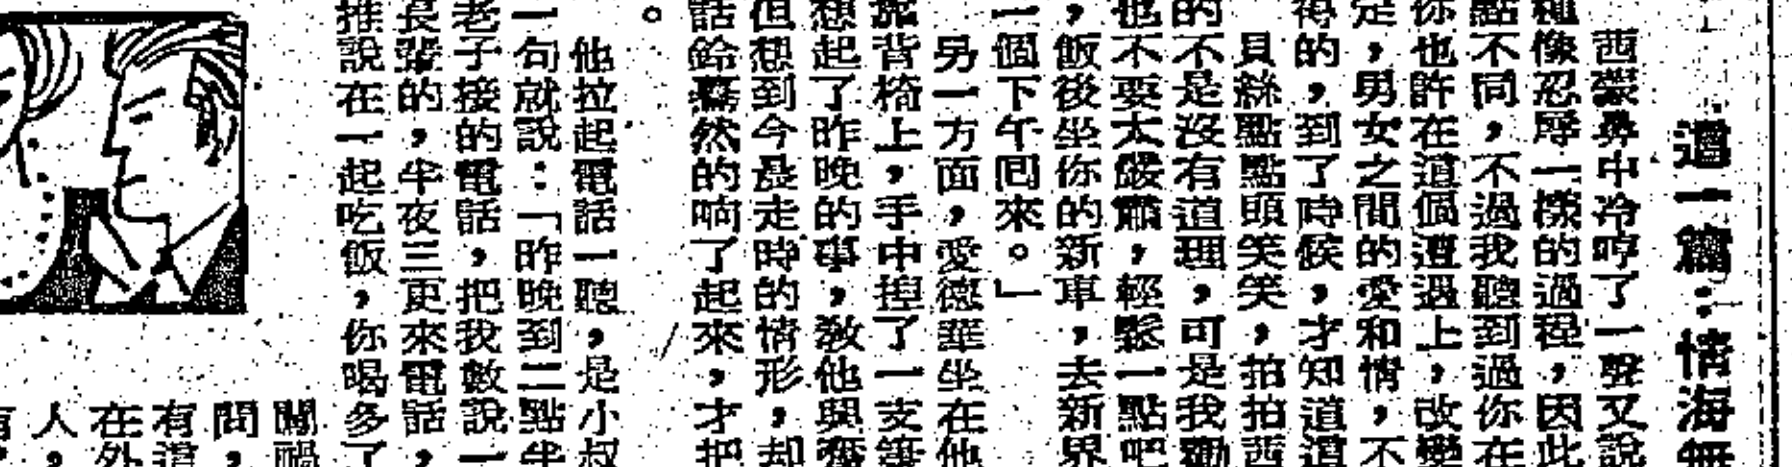 這一篇：情海無
西蒙鼻中冷哼了一聲又說
種像忍辱一樣的過程，因此
點不同，不過我聽到過你在
你也許在這個遭遇上，改變
定，男女之間的愛和情，不
得的，到了時候，才知道這
貝絲點點頭笑笑，拍拍西
的不是沒有道理，可是我勸
也不要太嚴肅，輕鬆一點吧
，飯後坐你的新車，去新界
一個下午回來。」
另一方面，愛德華坐在他
靠背椅上，手中揑了一支筆
想起了昨晚的事，教他與喬
但想到今晨走時的情形，却
話鈴驀然的响了起來，才把
。
他拉起電話一聽，是小叔
一句就說：「昨晚到二點半
老子接的電話，把我數說一
長輩的，半夜三更來電話，
推說在一起吃飯，你喝多了
閙禍
問，
有這
在外
人，